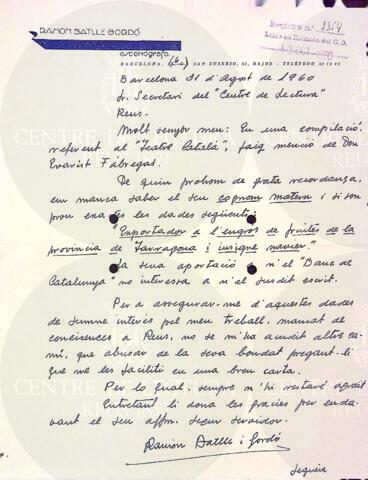 RAMON BATLLE GORDÓ
escenógrafo
BARCELONA, SAN EUSEBIO, 62, BAJOS - TELÉFONO
Registro n.º 1354
Barcelona 31 d'Agost de 1960
Sr. Secretari del "Centre de Lectura"
Reus.
Molt senyor meu: En una compilació
referent al "Teatre Català", faig menció de Don
Evarist Fàbregas.
De quin prohom de grata recordança,
em manca saber el seu cognom matern i si son
prou exa es les dades següents
"Exportador a l'engros de fruites de la
provincia de Tarragona i insigne navier."
La seva aportació n el "Banc de
Catalunya" no interessa a n'el susdit escrit.
Per a assegurar-me d'aquestes dades
de summe interès pel meu treball, mancat de
coneixences Reus, no se m'ha acudit altre ca-
mí, que abusar de la seva bondat pregant-li
que me les faciliti en una breu carta.
Per lo qual, sempre m'hi restaré agrait
Entretant li dona les gracies per enda-
vant el seu affm. segur servidor.
Ramon Batlle i Gordó
Segueix